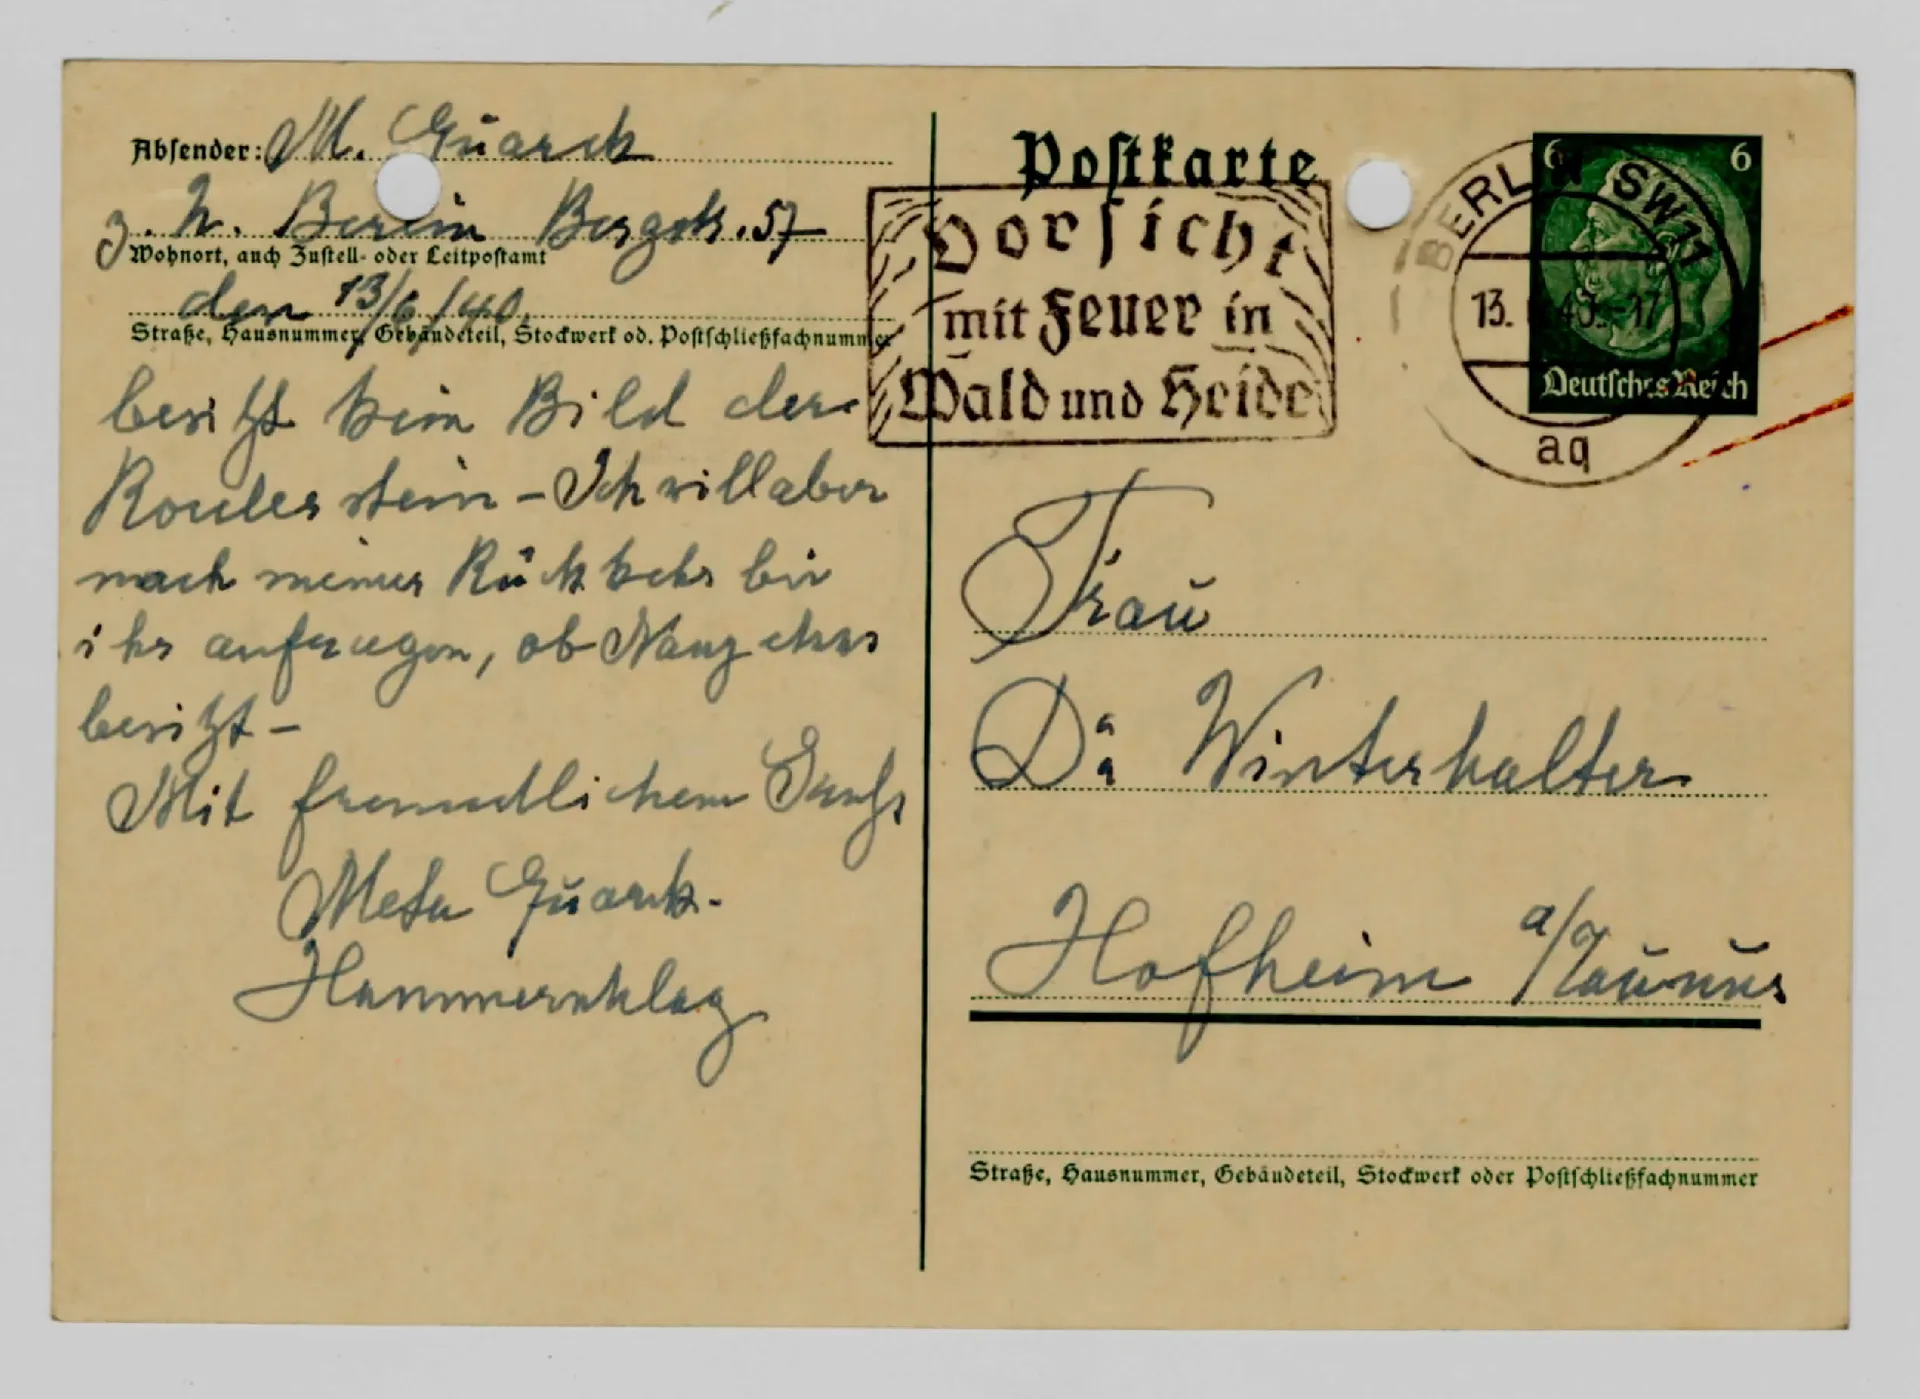 Absender: M. Quarck
z. Z. Berlin Bergstr. 57
Wohnort, auch Zustell- oder Leitpostamt
den 13/6/40.
Straße, Hausnummer, Gebäudeteil, Stockwerk od. Postschließfachnummer
besitzt kein Bild der
stein – Ich will aber
nach meiner Rückkehr bei
ihr anfragen, ob etwas
besitzt –
Mit freundlichem Gruß
Meta Quarck-
Hammerschlag
Postkarte
Vorsicht
mit Feuer in
Wald und Heide
BERLIN SW 11
13. 40.-17
aq
6 6
Deutsches Reich
Frau
Dr. Winterhalter
Hofheim a/Taunus
Straße, Hausnummer, Gebäudeteil, Stockwerk oder Postschließfachnummer